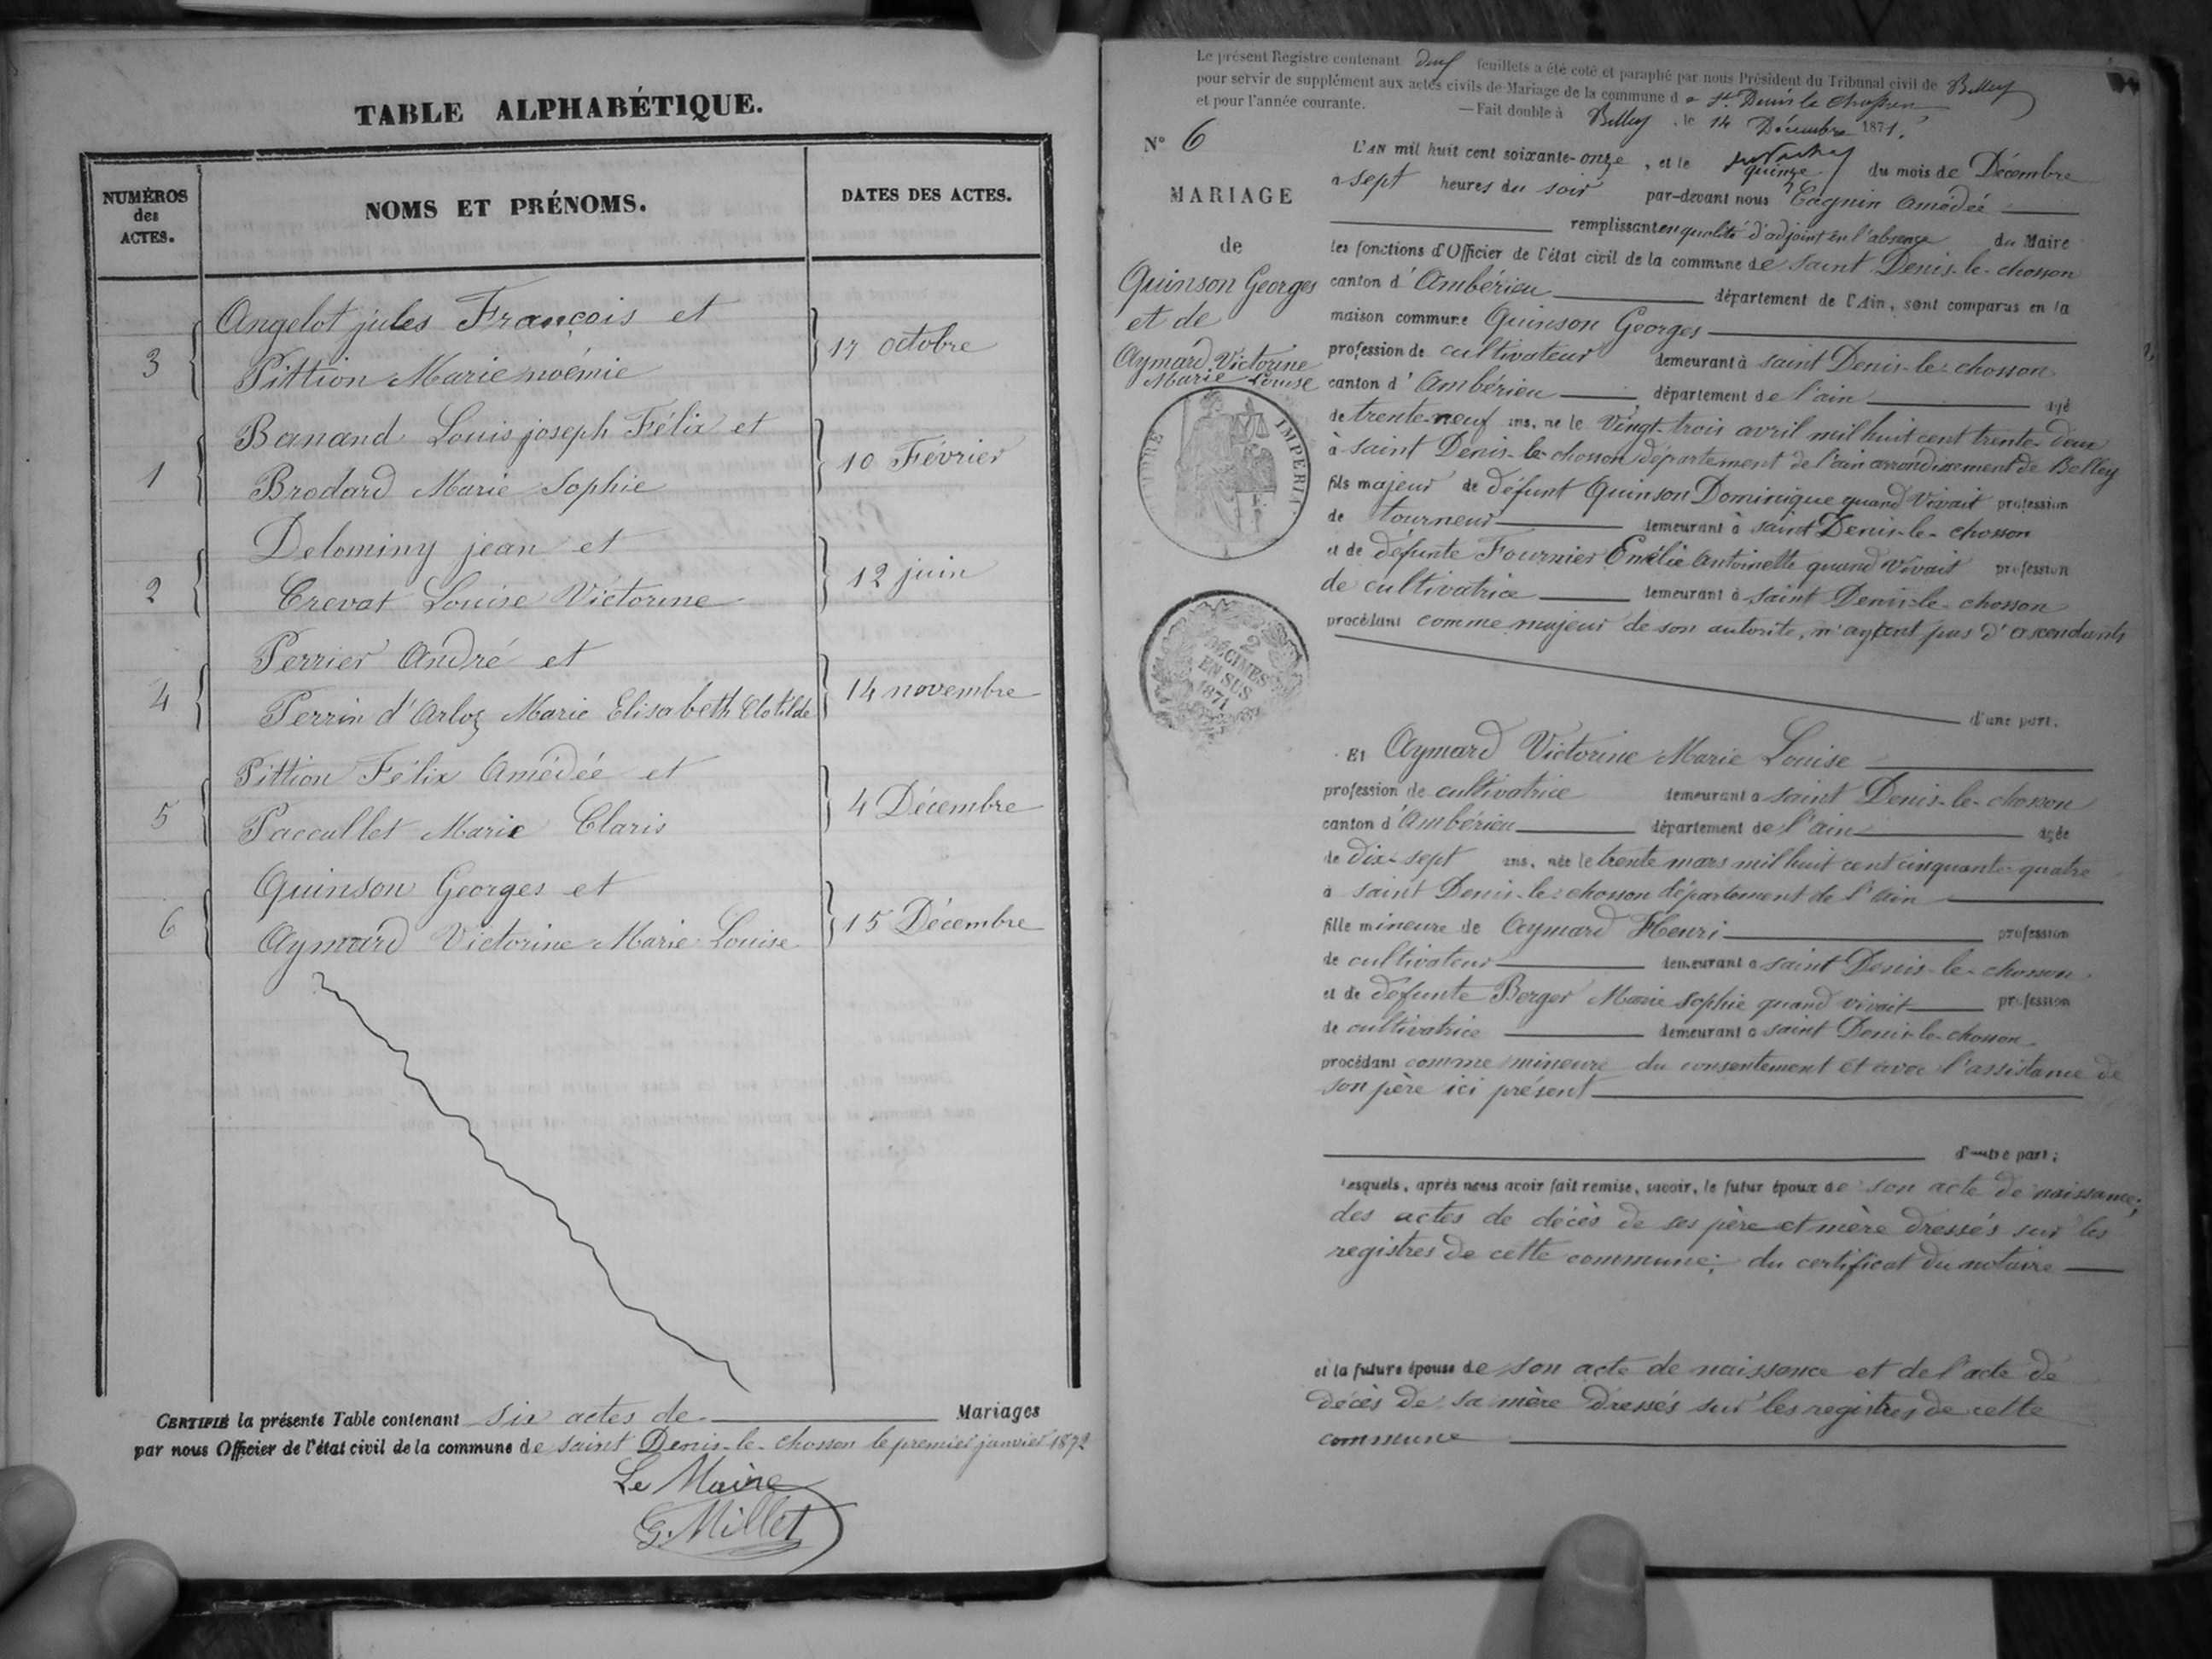 TABLE ALPHABÉTIQUE.
NUMÉROS des ACTES.
NOMS ET PRÉNOMS.
DATES DES ACTES.
Angelot jules François et
3 Pittion Marie noémie 17 octobre
Banand Louis joseph Félix et
1 Brodard Marie Sophie 10 Février
Delominy jean et
2 Crevat Louise Victorine 12 juin
Perrier André et
4 Perrin d'Arloz Marie Elisabeth Clotilde 14 novembre
Pittion Félix Amédée et
5 Paccullet Marie Claris 4 Décembre
Quinson Georges et
6 Aymard Victorine Marie Louise 15 Décembre
CERTIFIÉ la présente Table contenant six actes de Mariages
par nous Officier de l'état civil de la commune de saint Denis-le-chosson le premier janvier 1872
Le Maire
G. Millet
Le présent Registre contenant feuillets a été coté et paraphé par nous Président du Tribunal civil de Belley
pour servir de supplément aux actes civils de Mariage de la commune d e St. Denis le Chosson
et pour l'année courante. — Fait double à Belley, le 14 Décembre 1871.
N° 6
MARIAGE
de
Quinson Georges
et de
Aymard Victorine
Marie Louise
TIMBRE IMPERIAL
2 DÉCIMES EN SUS 1871
L'AN mil huit cent soixante-onze, et le quinze du mois de Décembre
a sept heures du soir par-devant nous Cagnin Amédée
remplissant en qualité d'adjoint en l'absence du Maire
les fonctions d'Officier de l'état civil de la commune de saint Denis-le-chosson
canton d'Ambérieu département de l'Ain, sont comparus en la
maison commune Quinson Georges
profession de cultivateur demeurant à saint Denis-le-chosson
canton d'Ambérieu département de l'ain âgé
de trente-neuf ans, né le Vingt-trois avril mil huit cent trente-deux
à saint Denis-le-chosson département de l'ain arrondissement de Belley
fils majeur de défunt Quinson Dominique quand vivait profession
de tourneur demeurant à saint Denis-le-chosson
et de défunte Fournier Emélie Antoinette quand vivait profession
de cultivatrice demeurant à saint Denis-le-chosson
procédant comme majeur de son autorité, n'ayant pas d'ascendants
d'une part.
Et Aymard Victorine Marie Louise
profession de cultivatrice demeurant a saint Denis-le-chosson
canton d'Ambérieu département de l'ain âgée
de dix-sept ans, née le trente mars mil huit cent cinquante-quatre
à saint Denis-le-chosson département de l'ain
fille mineure de Aymard Henri profession
de cultivateur demeurant a saint Denis-le-chosson
et de défunte Berger Marie Sophie quand vivait profession
de cultivatrice demeurant a saint Denis-le-chosson
procédant comme mineure du consentement et avec l'assistance de
son père ici présent
d'autre part;
Lesquels, après nous avoir fait remise, savoir, le futur époux de son acte de naissance;
des actes de décès de ses père et mère dressés sur les
registres de cette commune; du certificat du notaire
et la future épouse de son acte de naissance et de l'acte de
décès de sa mère dressés sur les registres de cette
commune